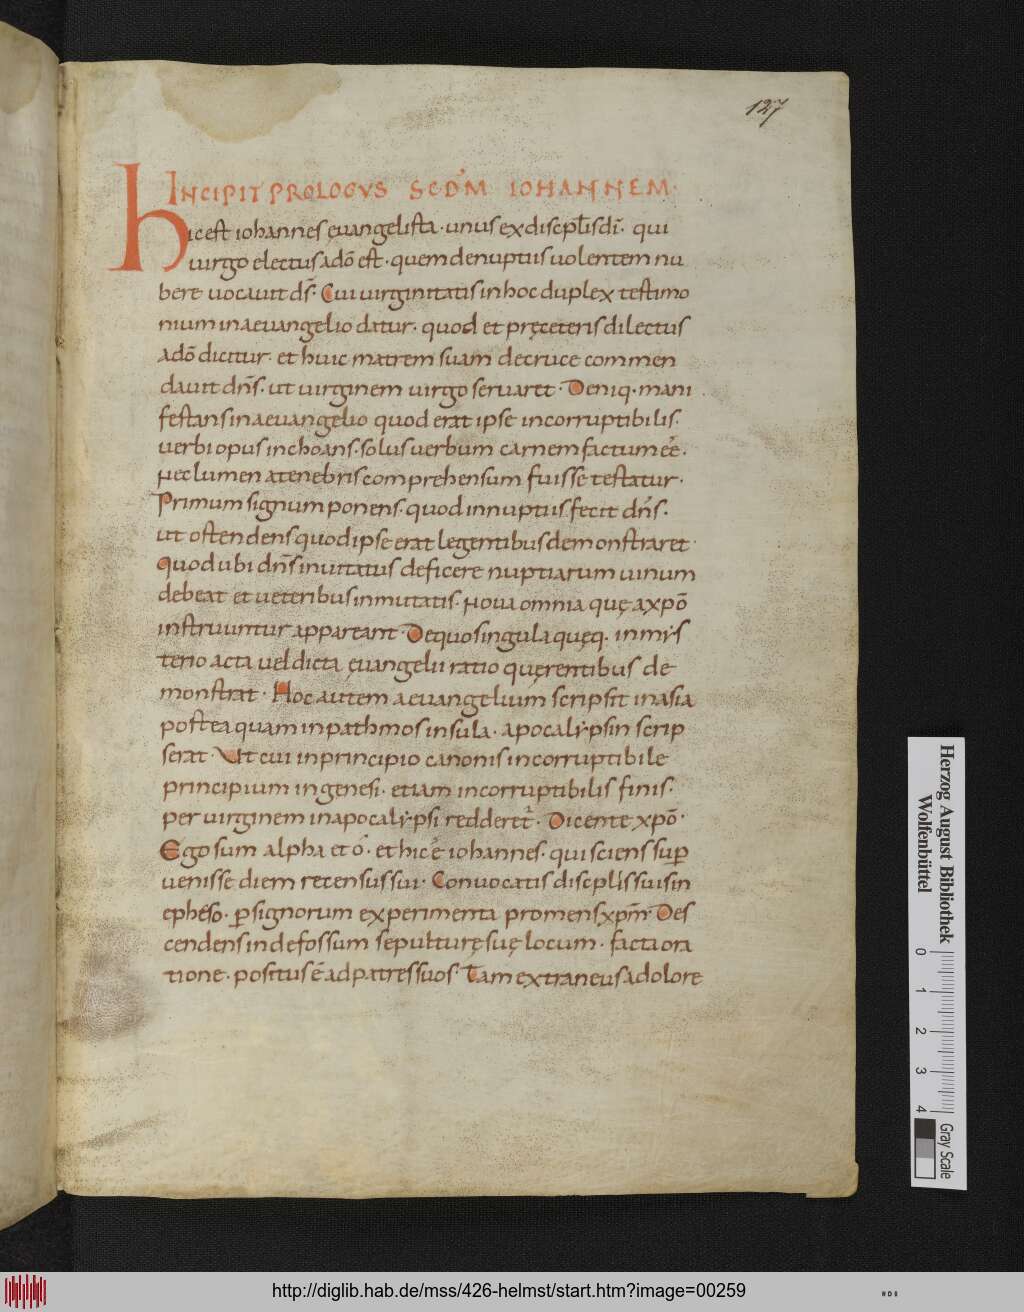 127
INCIPIT PROLOGVS SCDM IOHANNEM·
hic est iohannes euangelista· unus ex discplis dī· qui
uirgo electus adō est· quem denuptiis uolentem nu
bere uocauit ds̄· Cui uirginitatis in hoc duplex testimo
nium in aeuangelio datur· quod et pręceteris dilectus
adō dicitur· et huic matrem suam decruce commen
dauit dn̄s· ut uirginem uirgo seruaret· Deniq· mani
festans in aeuangelio quod erat ipse incorruptibilis·
uerbi opus inchoans· solus uerbum carnem factum eē·
nec lumen atenebris comprehensum fuisse testatur·
Primum signum ponens· quod innuptiis fecit dn̄s·
ut ostendens quod ipse erat legentibus demonstraret·
quod ubi dn̄s inuitatus deficere nuptiarum uinum
debeat et ueteribus inmutatis· noua omnia quę axpō
instruuntur appareant· Dequo singula quęq· inmys
terio acta uel dicta ęuangelii ratio quęrentibus de
monstrat· Hoc autem aeuangelium scripsit inasia
postea quam inpathmos insula· apocalypsin scrip
serat· Ut cui inprincipio canonis incorruptibile
principium ingenesi· etiam incorruptibilis finis·
per uirginem inapocalypsi redderet̄· Dicente xpō·
Ego sum alpha et ō· et hic ē iohannes· qui sciens sup̄
uenisse diem recensus sui· Conuocatis discplis suis in
epheso· p signorum experimenta promens xpm̄· Des
cendens indefossum sepulturę suę locum· facta ora
tione· positus ē ad patres suos· Tam extraneus adolore
Herzog August Bibliothek
Wolfenbüttel
0 1 2 3 4
Gray Scale
http://diglib.hab.de/mss/426-helmst/start.htm?image=00259